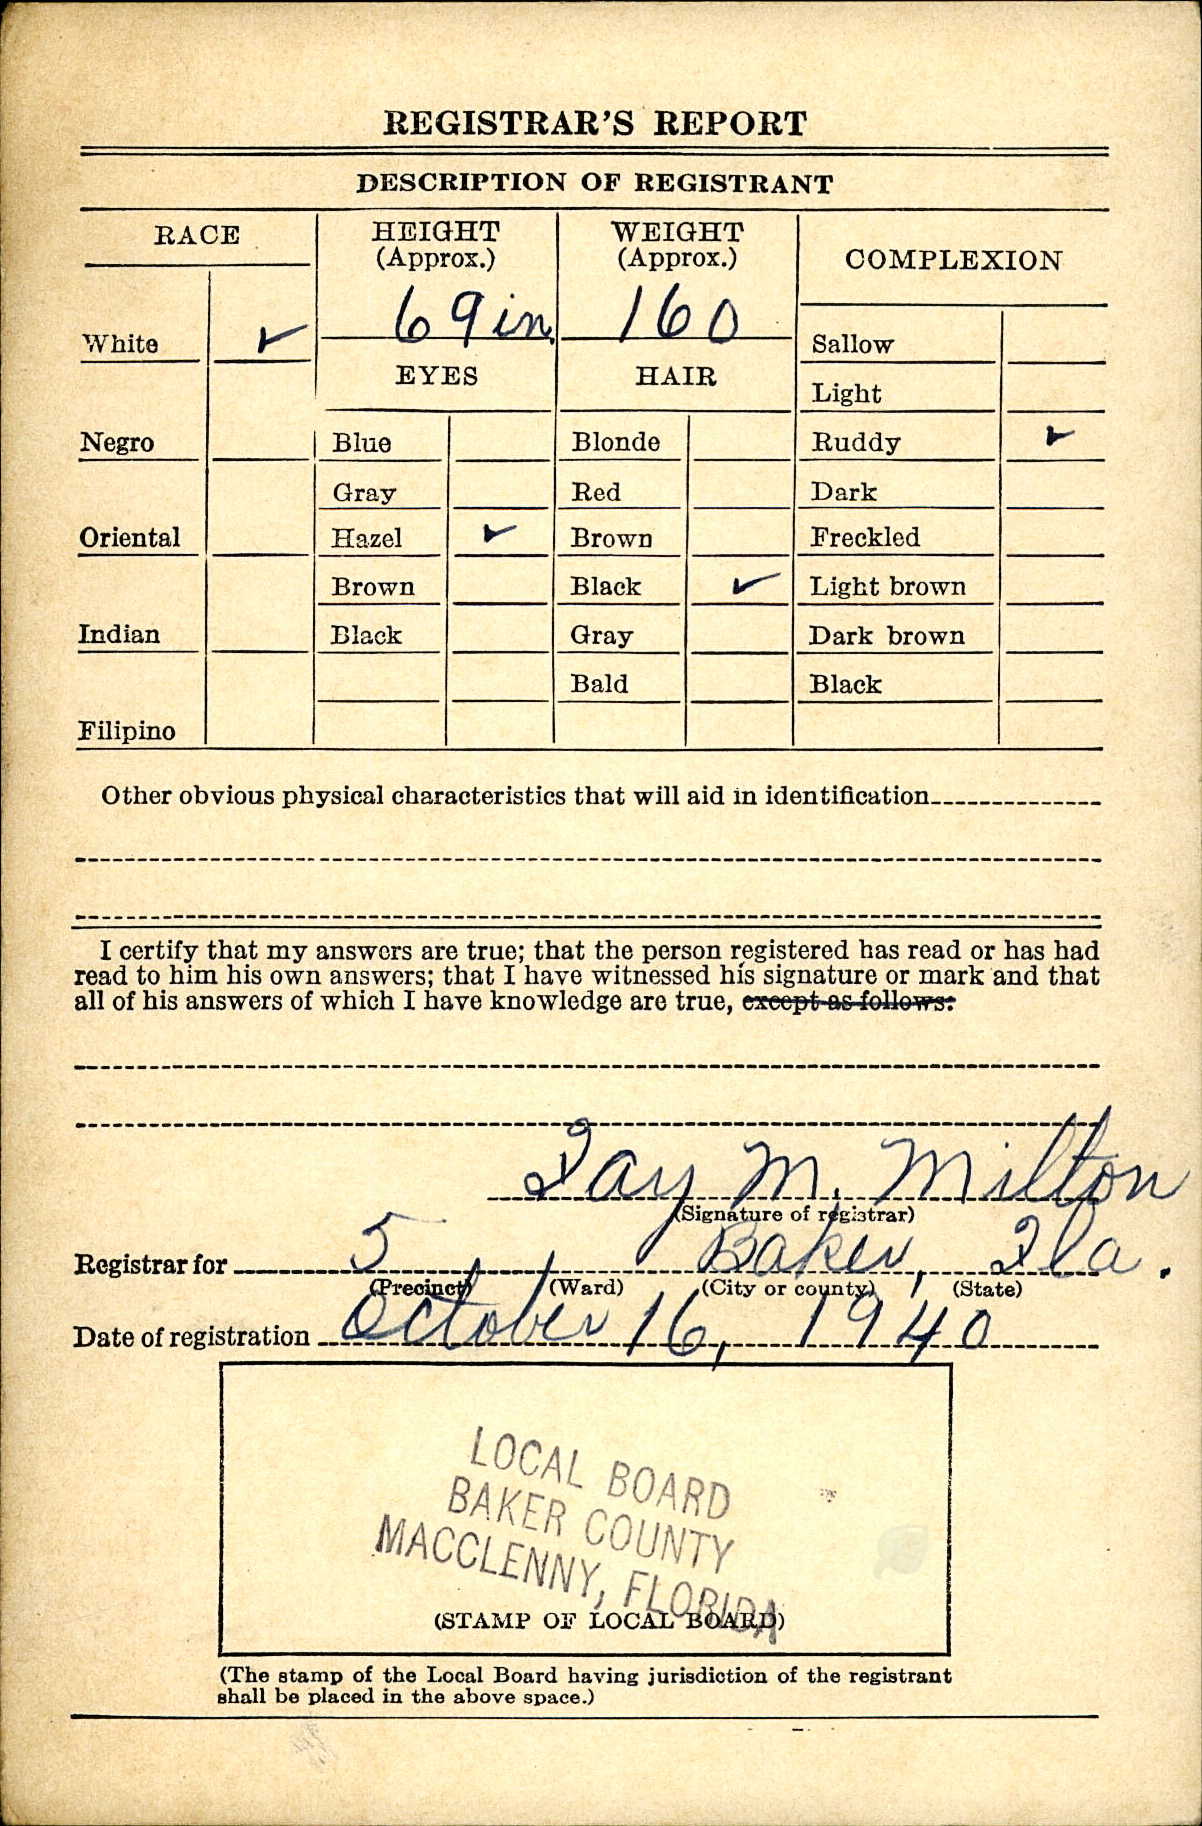 REGISTRAR'S REPORT
DESCRIPTION OF REGISTRANT
RACE
White ✓
Negro
Oriental
Indian
Filipino
HEIGHT
(Approx.)
69 in.
EYES
Blue
Gray
Hazel ✓
Brown
Black
WEIGHT
(Approx.)
160
HAIR
Blonde
Red
Brown
Black ✓
Gray
Bald
COMPLEXION
Sallow
Light
Ruddy ✓
Dark
Freckled
Light brown
Dark brown
Black
Other obvious physical characteristics that will aid in identification
I certify that my answers are true; that the person registered has read or has had
read to him his own answers; that I have witnessed his signature or mark and that
all of his answers of which I have knowledge are true, except as follows:
Fay M. Milton
(Signature of registrar)
Registrar for 5 Baker, Fla.
(Precinct) (Ward) (City or county) (State)
Date of registration October 16, 1940
LOCAL BOARD
BAKER COUNTY
MACCLENNY, FLORIDA
(STAMP OF LOCAL BOARD)
(The stamp of the Local Board having jurisdiction of the registrant
shall be placed in the above space.)